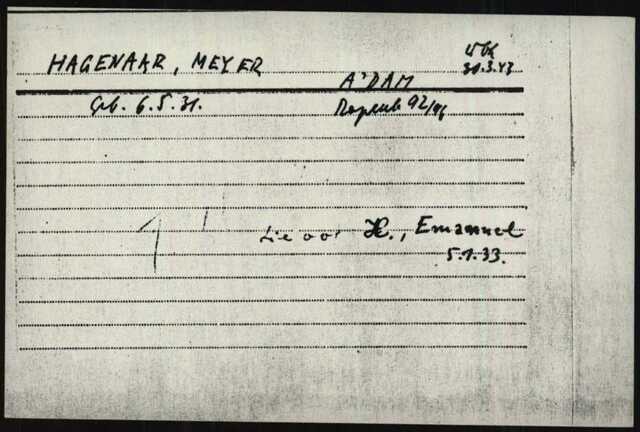 HAGENAAR, MEYER
30.3.43
A'DAM
Geb. 6.5.31.
92/
zie oor H., Emanuel
5.1.33.